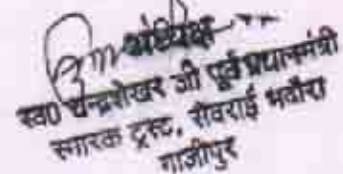 अध्यक्ष
स्व0 चन्द्रशेखर जी पूर्व प्रधानमंत्री
स्मारक ट्रस्ट, सेवराई भदौरा
गाजीपुर